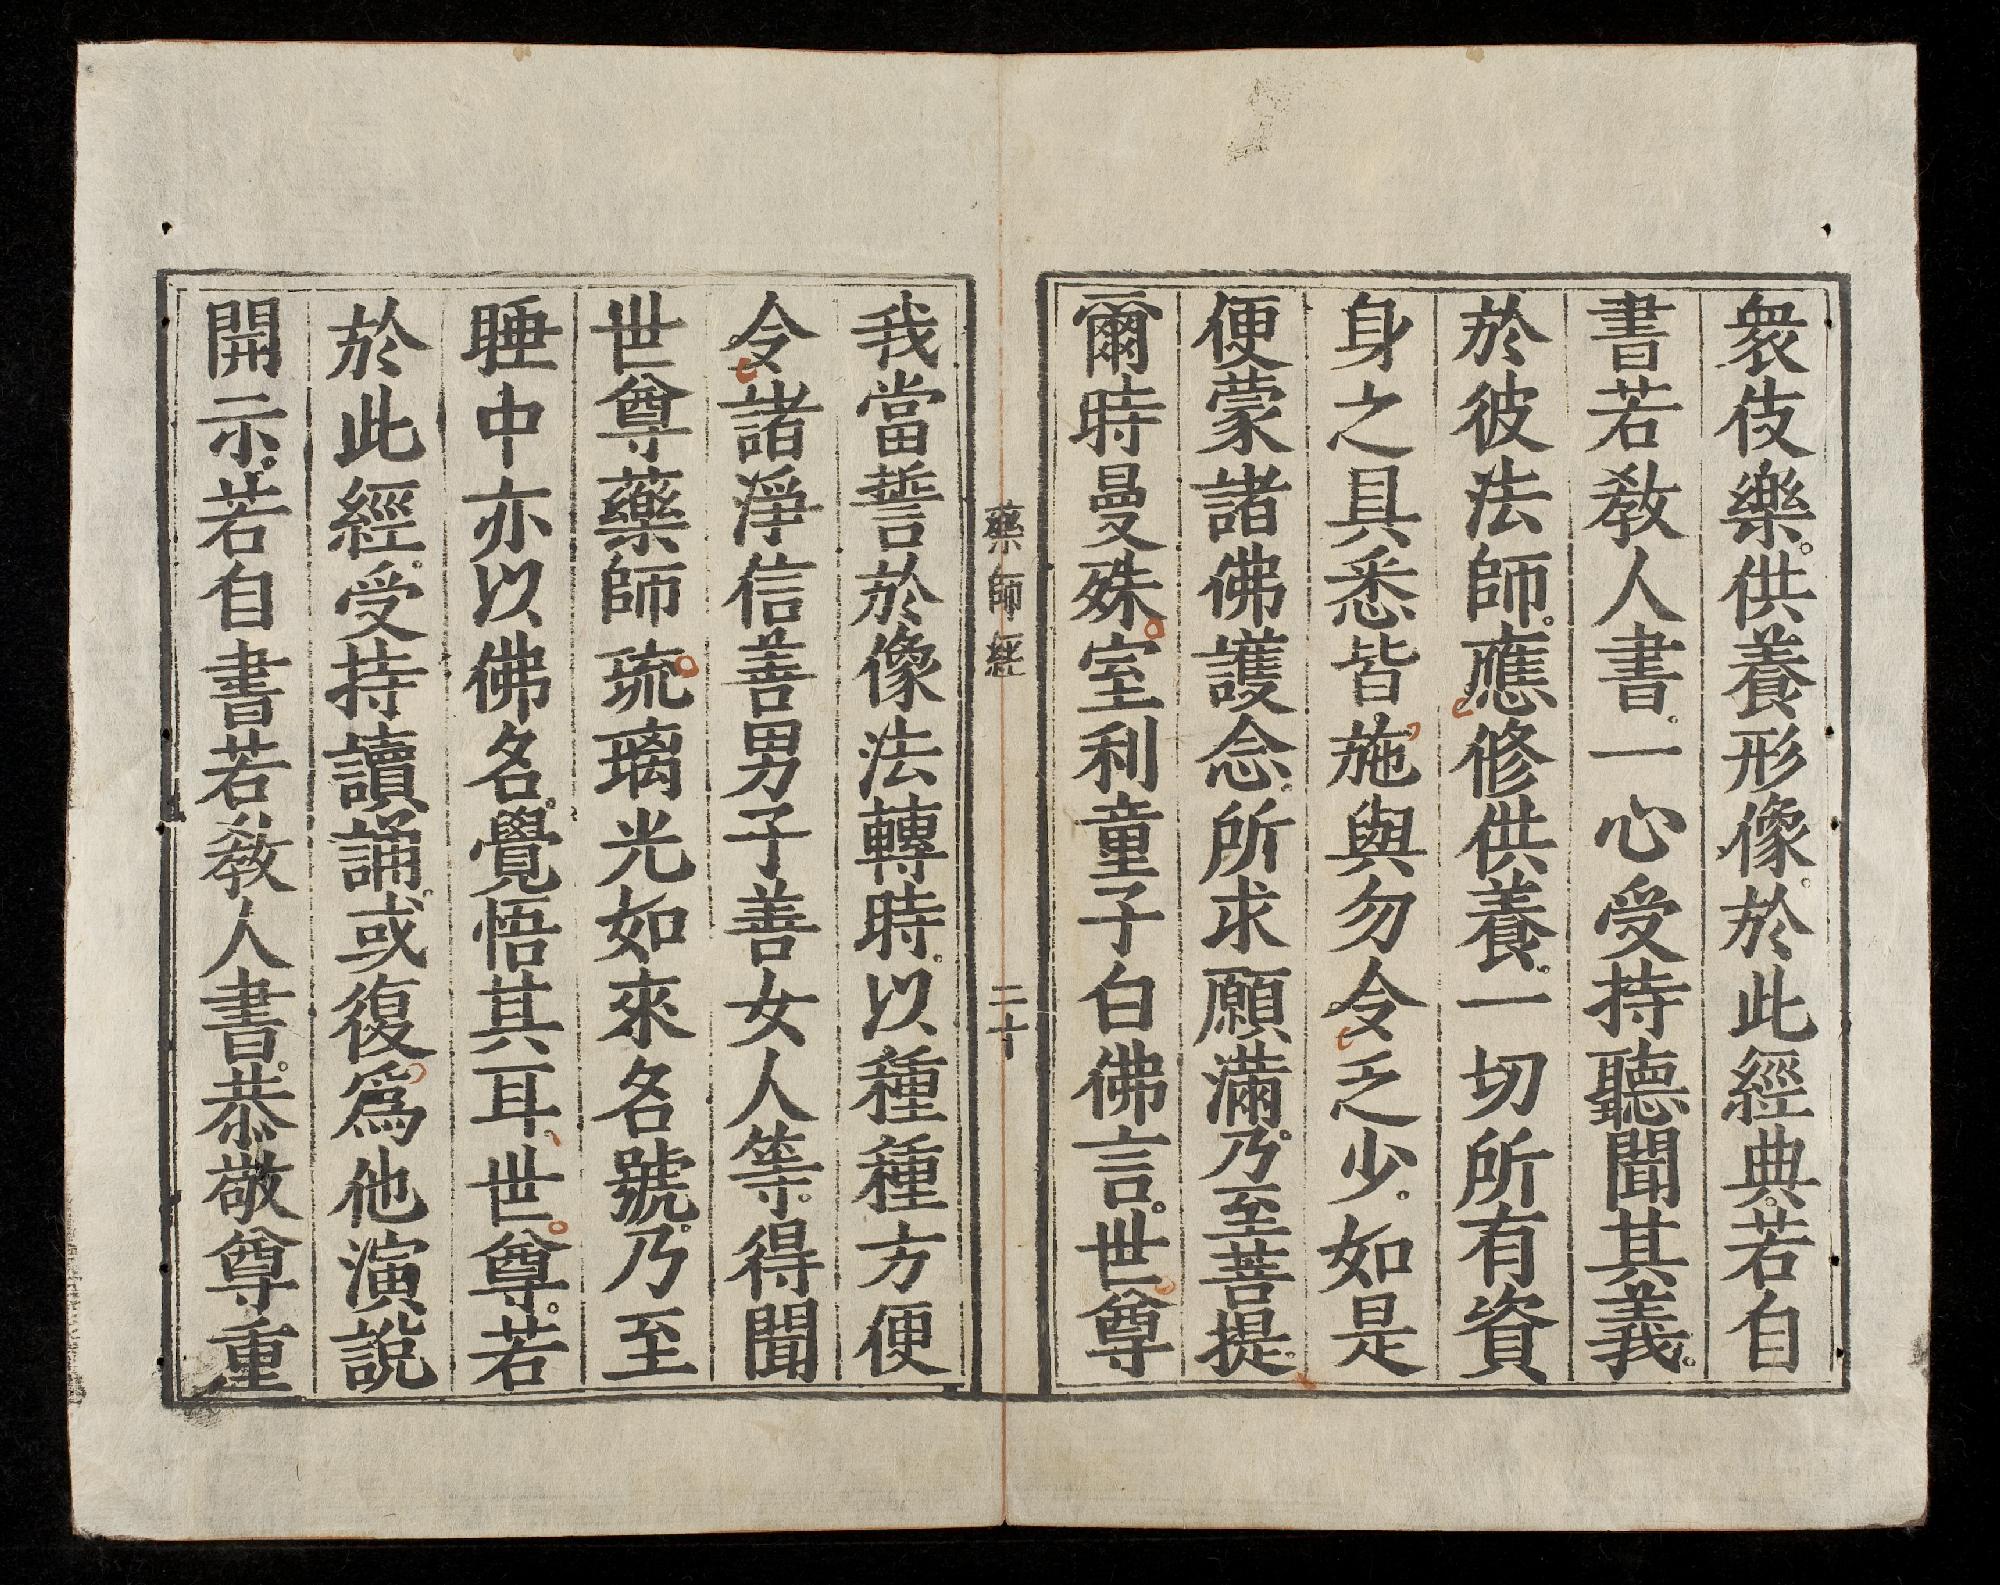 衆伎樂。供養形像。於此經典。若自
書若教人書。一心受持聽聞其義。
於彼法師。應修供養。一切所有資
身之具悉皆施與勿令乏少。如是
便蒙諸佛護念。所求願滿。乃至菩提。
爾時曼殊室利童子白佛言。世尊
藥師經
二十
我當誓於像法轉時。以種種方便
令諸淨信善男子善女人等。得聞
世尊藥師琉璃光如來名號。乃至
睡中亦以佛名。覺悟其耳。世尊。若
於此經。受持讀誦。或復爲他演說
開示。若自書若教人書。恭敬尊重